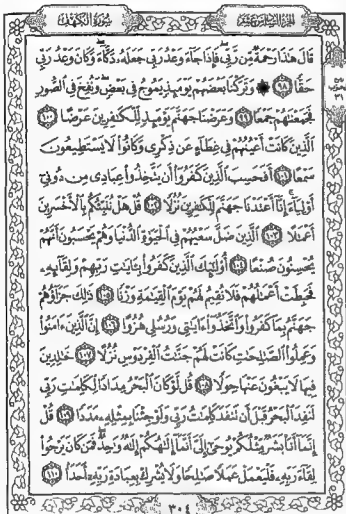 سُورَةُ الكَهْفِ الجُزْءُ السَّادِسَ عَشَرَ
قَالَ هَٰذَا رَحْمَةٌ مِّن رَّبِّى فَإِذَا جَآءَ وَعْدُ رَبِّى جَعَلَهُۥ دَكَّآءَ وَكَانَ وَعْدُ رَبِّى
حَقًّا ٩٨ وَتَرَكْنَا بَعْضَهُمْ يَوْمَئِذٍ يَمُوجُ فِى بَعْضٍ وَنُفِخَ فِى ٱلصُّورِ
فَجَمَعْنَٰهُمْ جَمْعًا ٩٩ وَعَرَضْنَا جَهَنَّمَ يَوْمَئِذٍ لِّلْكَٰفِرِينَ عَرْضًا ١٠٠
ٱلَّذِينَ كَانَتْ أَعْيُنُهُمْ فِى غِطَآءٍ عَن ذِكْرِى وَكَانُوا۟ لَا يَسْتَطِيعُونَ
سَمْعًا ١٠١ أَفَحَسِبَ ٱلَّذِينَ كَفَرُوٓا۟ أَن يَتَّخِذُوا۟ عِبَادِى مِن دُونِىٓ
أَوْلِيَآءَ إِنَّآ أَعْتَدْنَا جَهَنَّمَ لِلْكَٰفِرِينَ نُزُلًا ١٠٢ قُلْ هَلْ نُنَبِّئُكُم بِٱلْأَخْسَرِينَ
أَعْمَٰلًا ١٠٣ ٱلَّذِينَ ضَلَّ سَعْيُهُمْ فِى ٱلْحَيَوٰةِ ٱلدُّنْيَا وَهُمْ يَحْسَبُونَ أَنَّهُمْ
يُحْسِنُونَ صُنْعًا ١٠٤ أُو۟لَٰٓئِكَ ٱلَّذِينَ كَفَرُوا۟ بِـَٔايَٰتِ رَبِّهِمْ وَلِقَآئِهِۦ
فَحَبِطَتْ أَعْمَٰلُهُمْ فَلَا نُقِيمُ لَهُمْ يَوْمَ ٱلْقِيَٰمَةِ وَزْنًا ١٠٥ ذَٰلِكَ جَزَآؤُهُمْ
جَهَنَّمُ بِمَا كَفَرُوا۟ وَٱتَّخَذُوٓا۟ ءَايَٰتِى وَرُسُلِى هُزُوًا ١٠٦ إِنَّ ٱلَّذِينَ ءَامَنُوا۟
وَعَمِلُوا۟ ٱلصَّٰلِحَٰتِ كَانَتْ لَهُمْ جَنَّٰتُ ٱلْفِرْدَوْسِ نُزُلًا ١٠٧ خَٰلِدِينَ
فِيهَا لَا يَبْغُونَ عَنْهَا حِوَلًا ١٠٨ قُل لَّوْ كَانَ ٱلْبَحْرُ مِدَادًا لِّكَلِمَٰتِ رَبِّى
لَنَفِدَ ٱلْبَحْرُ قَبْلَ أَن تَنفَدَ كَلِمَٰتُ رَبِّى وَلَوْ جِئْنَا بِمِثْلِهِۦ مَدَدًا ١٠٩ قُلْ
إِنَّمَآ أَنَا۠ بَشَرٌ مِّثْلُكُمْ يُوحَىٰٓ إِلَىَّ أَنَّمَآ إِلَٰهُكُمْ إِلَٰهٌ وَٰحِدٌ فَمَن كَانَ يَرْجُوا۟
لِقَآءَ رَبِّهِۦ فَلْيَعْمَلْ عَمَلًا صَٰلِحًا وَلَا يُشْرِكْ بِعِبَادَةِ رَبِّهِۦٓ أَحَدًۢا ١١٠
٣٠٤